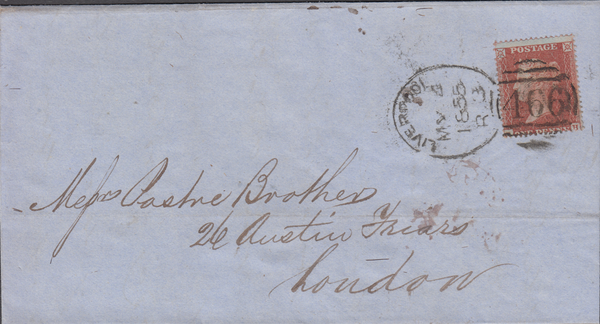 POSTAGE
LIVERPOOL
MY 4
1855
R 3
466
Messrs Pastre Brothers
26 Austin Friars
London